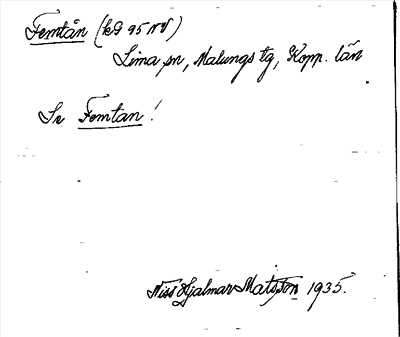 Femtån (kG 95 NV)
Lima sn, Malungs tg, Kopp. län
Se Femtan!
Niss Hjalmar Matsson 1935.